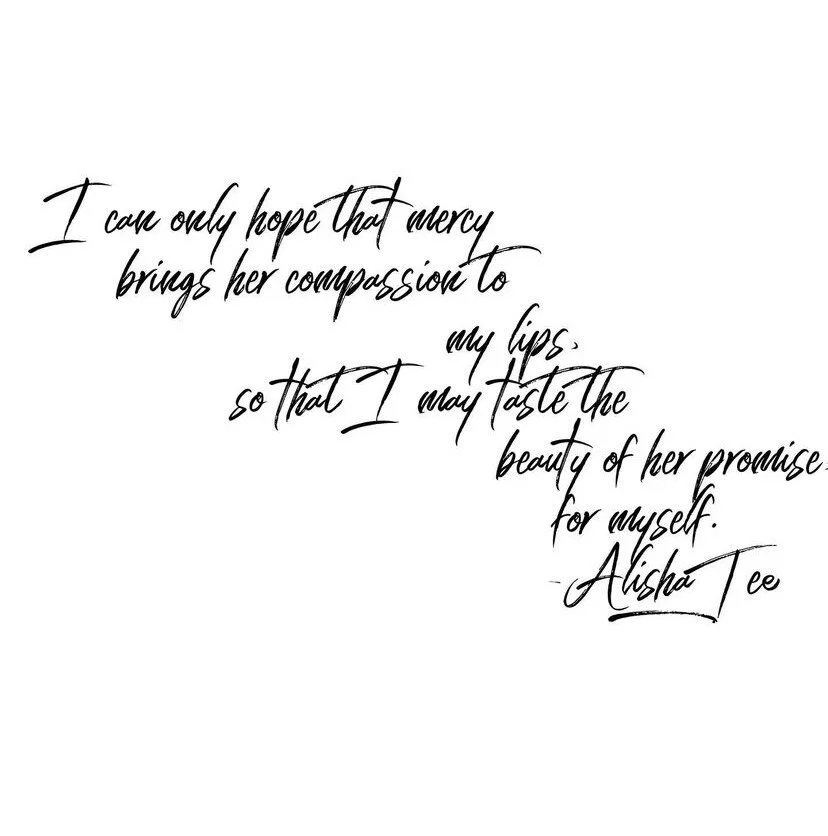 I can only hope that mercy
brings her compassion to
my lips,
so that I may taste the
beauty of her promise,
for myself.
- Alisha Tee